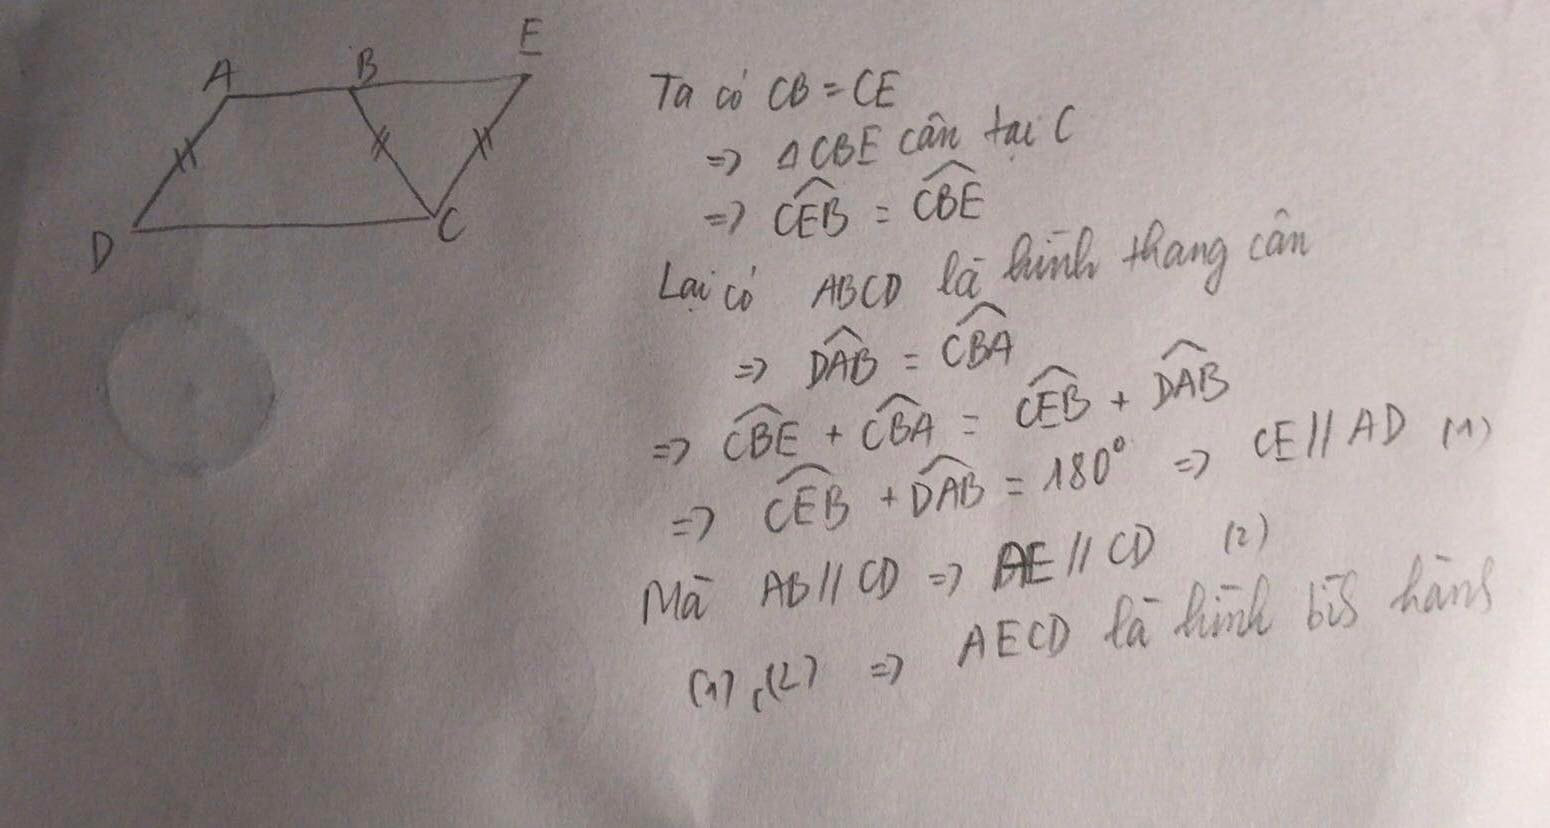 A B E
D C
Ta có CB = CE
=> ΔCBE cân tại C
=> \widehat{CEB} = \widehat{CBE}
Lại có ABCD là hình thang cân
=> \widehat{DAB} = \widehat{CBA}
=> \widehat{CBE} + \widehat{CBA} = \widehat{CEB} + \widehat{DAB}
=> \widehat{CEB} + \widehat{DAB} = 180° => CE // AD (1)
Mà AB // CD => AE // CD (2)
(1), (2) => AECD là hình bìs hàns